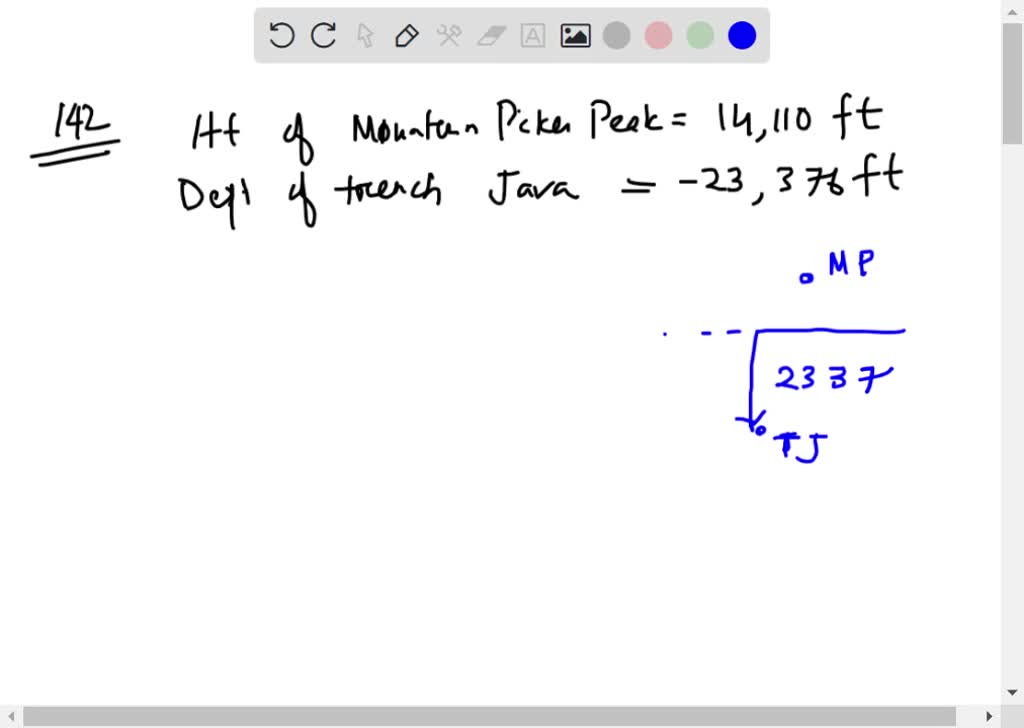 142
Ht of Mountain Pickes Peak = 14,110 ft
Dept of trench Java = -23,376 ft
MP
2337
TJ